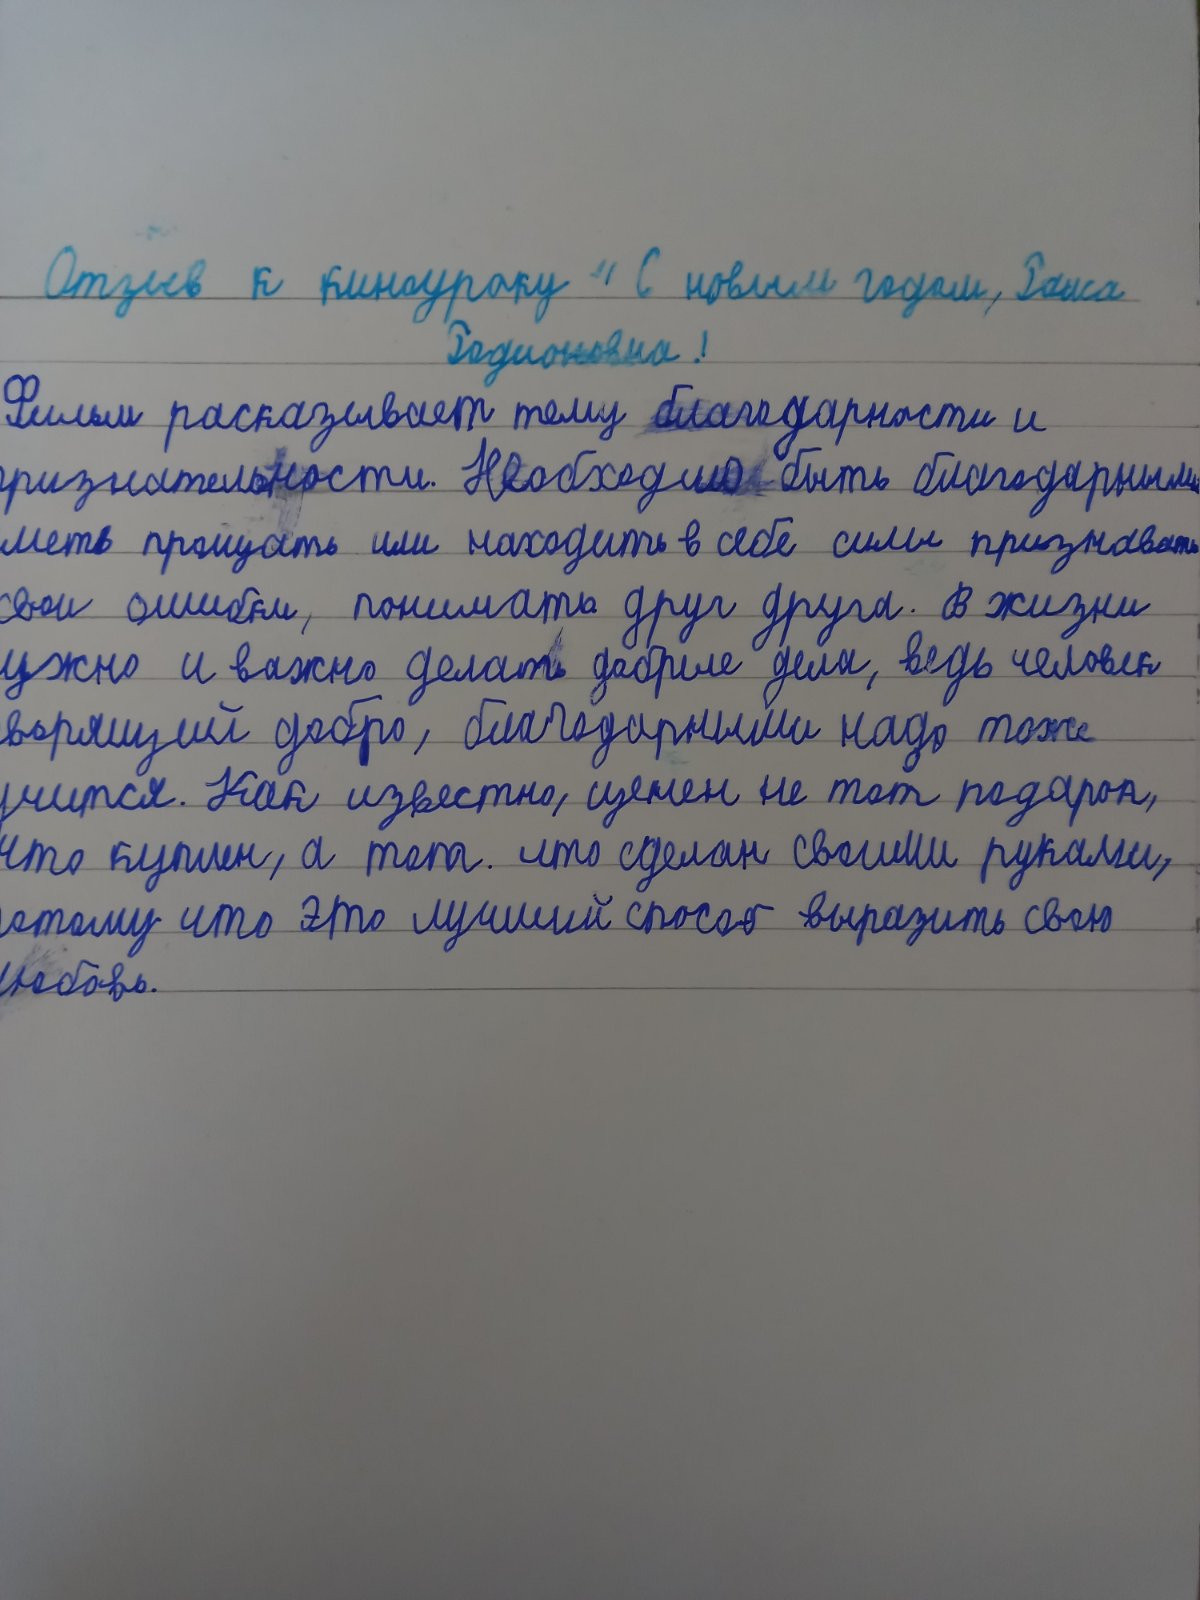 Отзыв к киноуроку "С новым годом, Раиса
Родионовна!
Фильм расказывает тему благодарности и
ризнательности. Необходимо быть благодарными
меть прощать или находить в себе силы признавать
свои ошибки, понимать друг друга. В жизни
ужно и важно делать добрые дела, ведь человек
ворящий добро, благодарными надо тоже
учится. Как известно, ценен не тот подарок,
что куплен, а тот. что сделан своими руками,
отому что это лучший способ выразить свою
любовь.